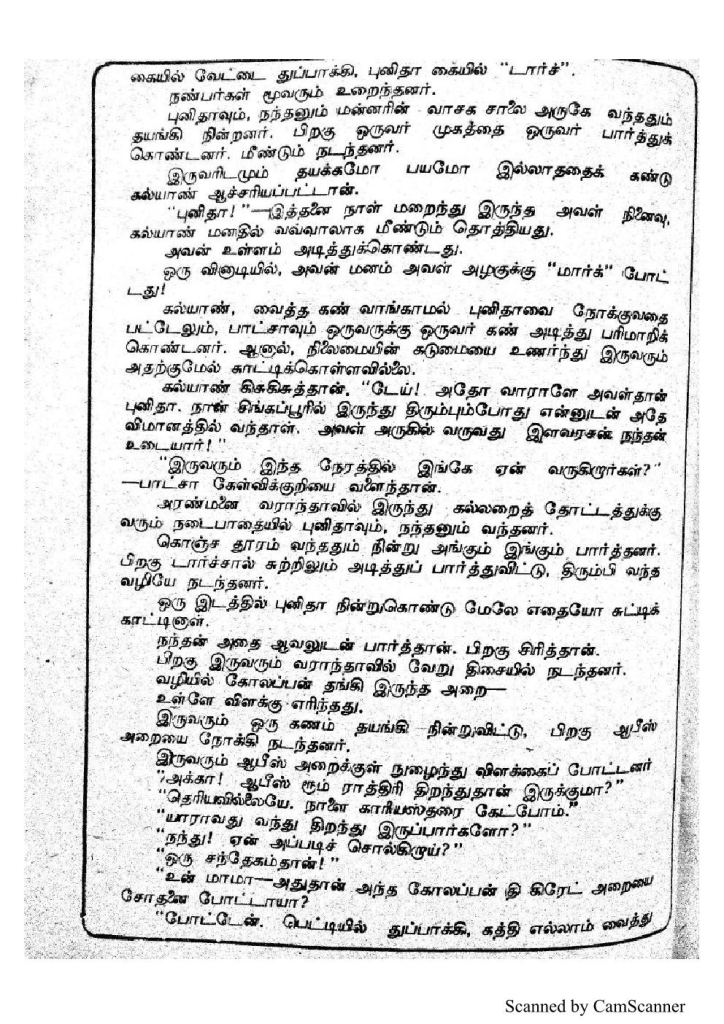 கையில் வேட்டை துப்பாக்கி, புனிதா கையில் "டார்ச்".
நண்பர்கள் மூவரும் உறைந்தனர்.
புனிதாவும், நந்தனும் மன்னரின் வாசக சாலை அருகே வந்ததும்
தயங்கி நின்றனர். பிறகு ஒருவர் முகத்தை ஒருவர் பார்த்துக்
கொண்டனர். மீண்டும் நடந்தனர்.
இருவரிடமும் தயக்கமோ பயமோ இல்லாததைக் கண்டு
கல்யாண் ஆச்சரியப்பட்டான்.
"புனிதா!"—இத்தனை நாள் மறைந்து இருந்த அவள் நினைவு,
கல்யாண் மனதில் வவ்வாலாக மீண்டும் தொத்தியது.
அவன் உள்ளம் அடித்துக்கொண்டது.
ஒரு வினாடியில், அவன் மனம் அவள் அழகுக்கு "மார்க்" போட்
டது!
கல்யாண், வைத்த கண் வாங்காமல் புனிதாவை நோக்குவதை
பட்டேலும், பாட்சாவும் ஒருவருக்கு ஒருவர் கண் அடித்து பரிமாறிக்
கொண்டனர். ஆனால், நிலைமையின் கடுமையை உணர்ந்து இருவரும்
அதற்குமேல் காட்டிக்கொள்ளவில்லை.
கல்யாண் கிசுகிசுத்தான். "டேய்! அதோ வாராளே அவள்தான்
புனிதா. நான் சிங்கப்பூரில் இருந்து திரும்பும்போது என்னுடன் அதே
விமானத்தில் வந்தாள். அவள் அருகில் வருவது இளவரசன் நந்தன்
உடையார்!"
"இருவரும் இந்த நேரத்தில் இங்கே ஏன் வருகிறார்கள்?"
—பாட்சா கேள்விக்குறியை வளைந்தான்.
அரண்மனை வராந்தாவில் இருந்து கல்லறைத் தோட்டத்துக்கு
வரும் நடைபாதையில் புனிதாவும், நந்தனும் வந்தனர்.
கொஞ்ச தூரம் வந்ததும் நின்று அங்கும் இங்கும் பார்த்தனர்.
பிறகு டார்ச்சால் சுற்றிலும் அடித்துப் பார்த்துவிட்டு, திரும்பி வந்த
வழியே நடந்தனர்.
ஒரு இடத்தில் புனிதா நின்றுகொண்டு மேலே எதையோ சுட்டிக்
காட்டினாள்.
நந்தன் அதை ஆவலுடன் பார்த்தான். பிறகு சிரித்தான்.
பிறகு இருவரும் வராந்தாவில் வேறு திசையில் நடந்தனர்.
வழியில் கோலப்பன் தங்கி இருந்த அறை—
உள்ளே விளக்கு எரிந்தது.
இருவரும் ஒரு கணம் தயங்கி நின்றுவிட்டு, பிறகு ஆபீஸ்
அறையை நோக்கி நடந்தனர்.
இருவரும் ஆபீஸ் அறைக்குள் நுழைந்து விளக்கைப் போட்டனர்
"அக்கா! ஆபீஸ் ரூம் ராத்திரி திறந்துதான் இருக்குமா?"
"தெரியவில்லையே. நாளை காரியஸ்தரை கேட்போம்."
"யாராவது வந்து திறந்து இருப்பார்களோ?"
"நந்து! ஏன் அப்படிச் சொல்கிறாய்?"
"ஒரு சந்தேகம்தான்!"
"உன் மாமா—அதுதான் அந்த கோலப்பன் தி கிரேட் அறையை
சோதனை போட்டாயா?
"போட்டேன். பெட்டியில் துப்பாக்கி, கத்தி எல்லாம் வைத்து
Scanned by CamScanner